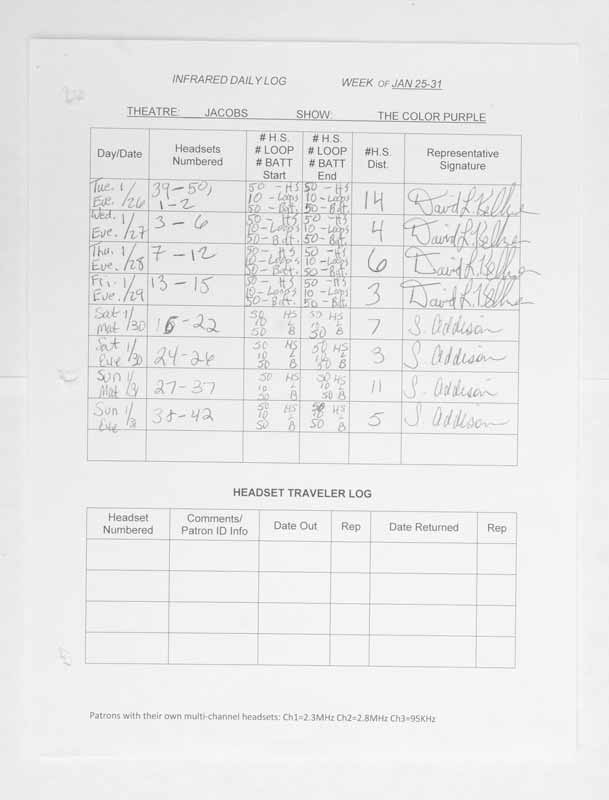 INFRARED DAILY LOG WEEK OF JAN 25-31
THEATRE: JACOBS SHOW: THE COLOR PURPLE
Day/Date Headsets Numbered # H.S. # LOOP # BATT Start # H.S. # LOOP # BATT End #H.S. Dist. Representative Signature
Tue. 1/26 Eve. 39-50, 1-2 50-HS 10-Loops 50-Bat. 50-HS 10-Loops 50-Bat. 14 David L. Kellner
Wed. 1/27 Eve. 3-6 50-HS 10-Loops 50-Batt. 50-HS 10-Loops 50-Batt. 4 David L. Kellner
Thu. 1/28 Eve. 7-12 50-HS 10-Loops 50-Batt. 50-HS 10-Loops 50-Batt. 6 David L. Kellner
Fri. 1/29 Eve. 13-15 50-HS 10-Loops 50-Batt. 50-HS 10-Loops 50-Batt. 3 David L. Kellner
Sat 1/30 Mat 16-22 50 HS 10 L 50 B 50 HS 10 L 50 B 7 S. Addison
Sat 1/30 Eve 24-26 50 HS 10 L 50 B 50 HS 10 L 50 B 3 S. Addison
Sun 1/31 Mat 27-37 50 HS 10 L 50 B 50 HS 10 L 50 B 11 S. Addison
Sun 1/31 Eve 38-42 50 HS 10 L 50 B 50 HS 10 L 50 B 5 S. Addison
HEADSET TRAVELER LOG
Headset Numbered Comments/ Patron ID Info Date Out Rep Date Returned Rep
Patrons with their own multi-channel headsets: Ch1=2.3MHz Ch2=2.8MHz Ch3=95KHz